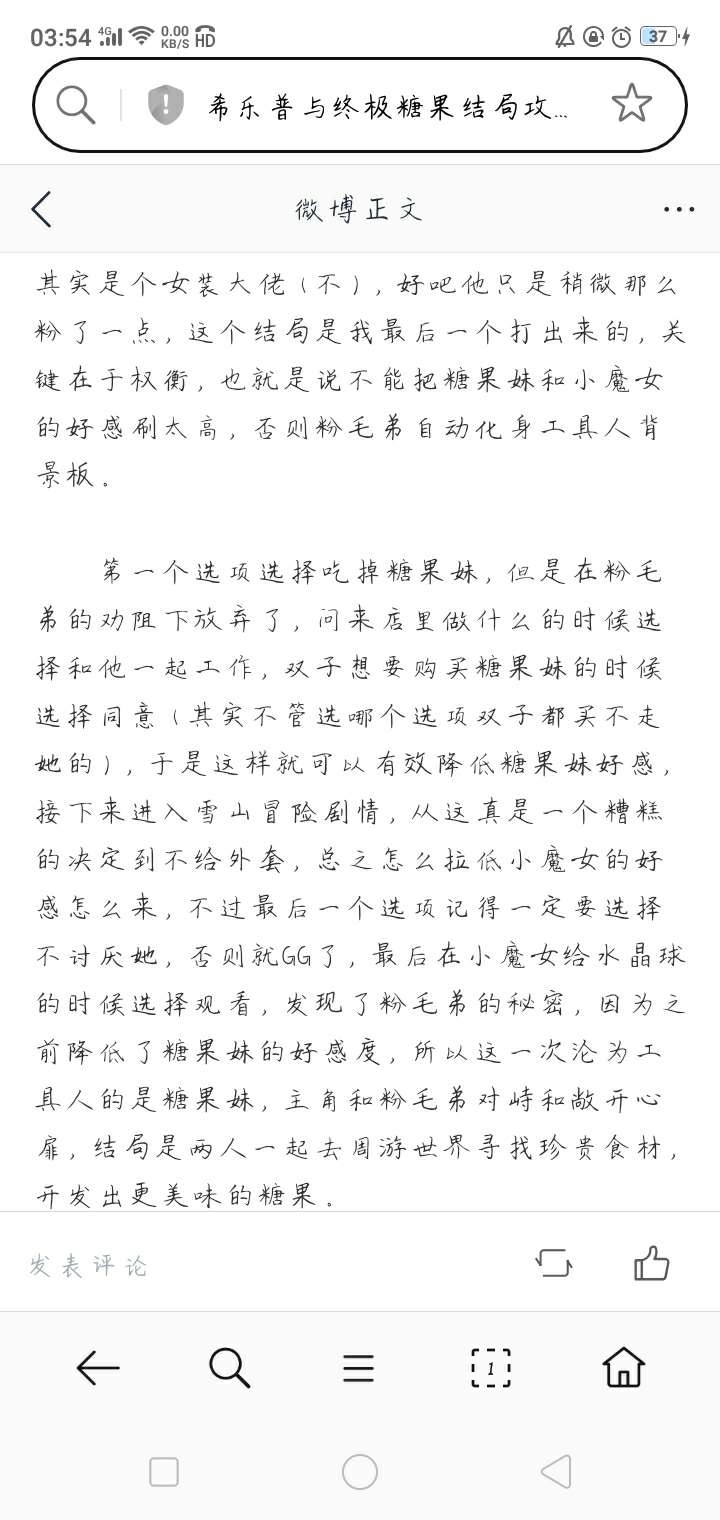 03:54 4G 0.00 KB/S HD 37
希乐普与终极糖果结局攻...
微博正文
其实是个女装大佬（不），好吧他只是稍微那么
粉了一点，这个结局是我最后一个打出来的，关
键在于权衡，也就是说不能把糖果妹和小魔女
的好感刷太高，否则粉毛弟自动化身工具人背
景板。
第一个选项选择吃掉糖果妹，但是在粉毛
弟的劝阻下放弃了，问来店里做什么的时候选
择和他一起工作，双子想要购买糖果妹的时候
选择同意（其实不管选哪个选项双子都买不走
她的），于是这样就可以有效降低糖果妹好感，
接下来进入雪山冒险剧情，从这真是一个糟糕
的决定到不给外套，总之怎么拉低小魔女的好
感怎么来，不过最后一个选项记得一定要选择
不讨厌她，否则就GG了，最后在小魔女给水晶球
的时候选择观看，发现了粉毛弟的秘密，因为之
前降低了糖果妹的好感度，所以这一次沦为工
具人的是糖果妹，主角和粉毛弟对峙和敞开心
扉，结局是两人一起去周游世界寻找珍贵食材，
开发出更美味的糖果。
发表评论
1